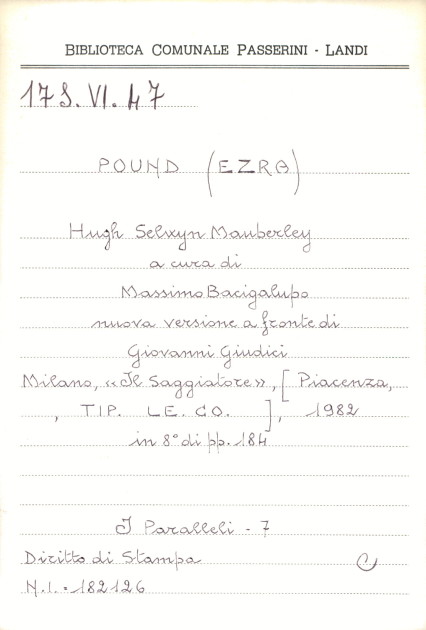 BIBLIOTECA COMUNALE PASSERINI - LANDI
17 S. VI. 47
POUND (EZRA)
Hugh Selwyn Mauberley
a cura di
Massimo Bacigalupo
nuova versione a fronte di
Giovanni Giudici
Milano, «Il Saggiatore», [Piacenza,
, TIP. LE. CO. ], 1982
in 8° di pp. 184
I Paralleli - 7
Diritto di Stampa C
N.I. = 182126